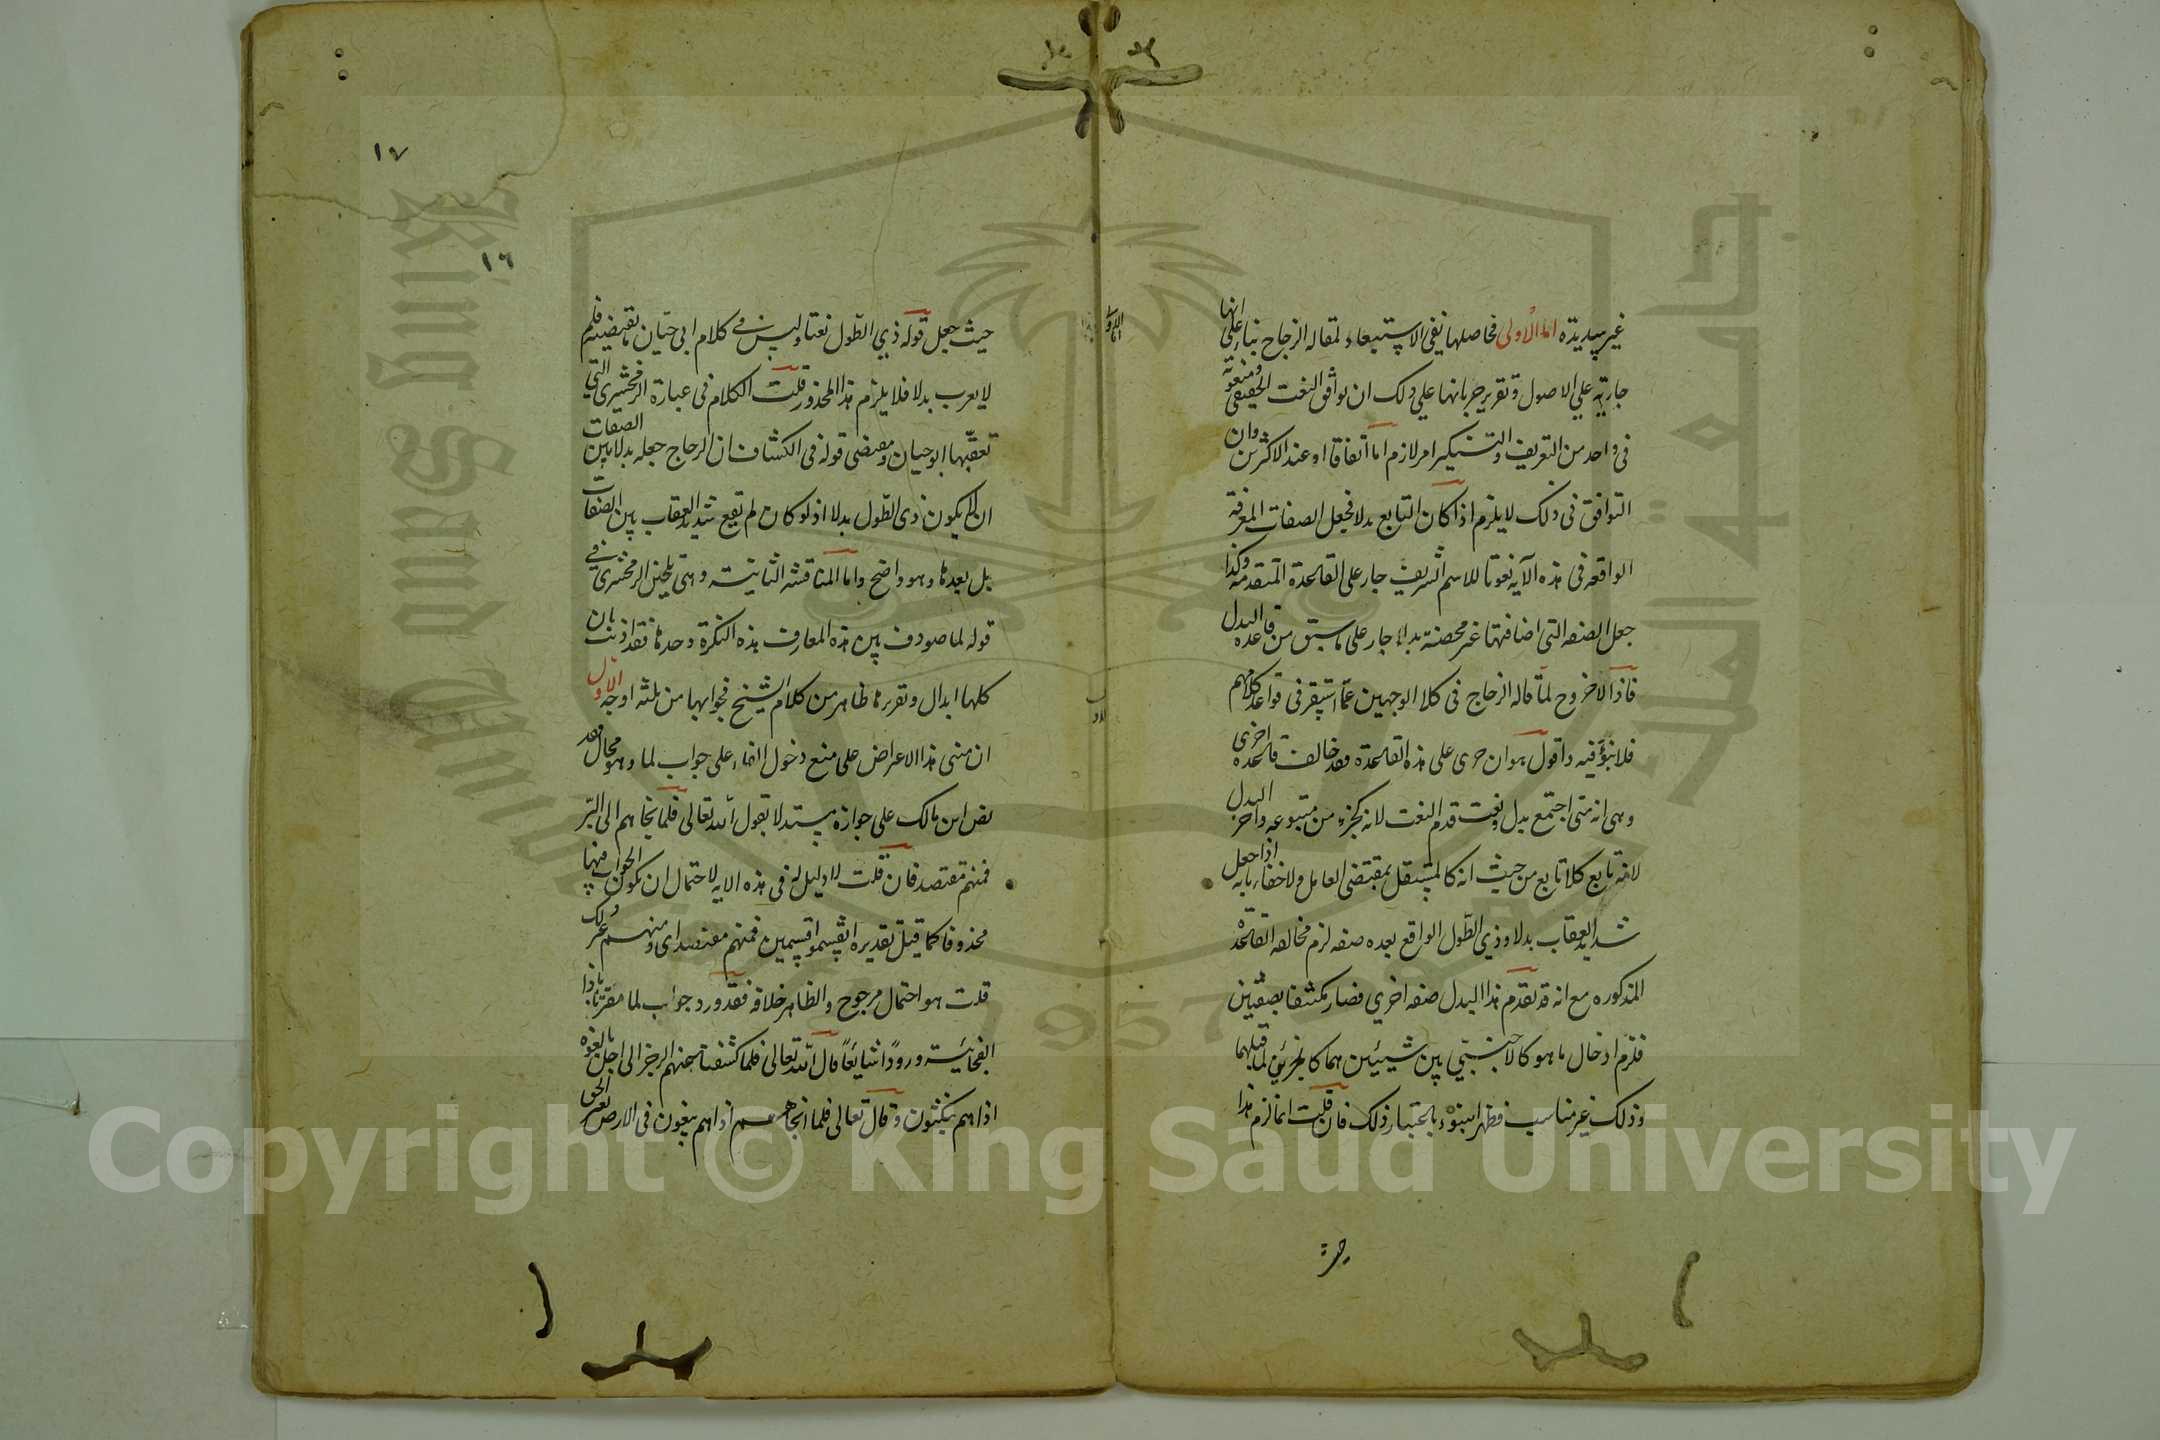 غير سديدة اما الاولى فحاصلها نفى الاستتباعاء لمقاله الزجاج بناء على انها
جارية على الاصول وتقرير جريانها على ذلك ان توافق النعت الحقيقي ومنعوته
فى واحد من التعريف والتنكير امر لازم اما اتفاقا او عند الاكثرين وان
التوافق فى ذلك لا يلزم اذا كان التابع بدلا فجعل الصفات المعرفة
الواقعه فى هذه الآيه نعوتا للاسم الشريف جار على القاعدة المتقدمة وكذا
جعل الصفه التى اضافتها غير محضة بدلا جار على ما سبق من قاعدة البدل
فاذا لا خروج لما قاله الزجاج فى كلا الوجهين عما استقر فى قواعد كلامهم
فلا نبوّ فيه واقول هو ان جرى على هذه القاعدة فقد خالف قاعدة اخرى
وهى انه متى اجتمع بدل ونعت قدم النعت لانه كجزء من متبوعه واخر البدل
لانه تابع كلا تابع من حيث انه كالمستقل بمقتضى العامل ولا خفاء بانه اذا جعل
شديد العقاب بدلا وذي الطّول الواقع بعده صفه لزم مخالفه القاعدة
المذكوره مع انه قد تقدم هذا البدل صفه اخري فصار مكتنفا بصفتين
فلزم ادخال ما هو كالاجنبيّ بين شيئين هما كالجزئين لما قبلهما
وذلك غير مناسب فظهر النبوّ باعتبار ذلك فان قلت انما لزم هذا
حيث
١٧
١٦
حيث جعل قوله ذي الطّول نعتا وليس في كلام ابى حيّان ما يقتضيه فلم
لا يعرب بدلا فلا يلزم هذا المحذور قلت الكلام فى عبارة الزمخشري التي
تعقّبها ابو حيان ومقتضى قوله فى الكشاف ان الزجاج جعله بدلا بين الصفات
ان لا يكون ذى الطّول بدلا اذ لو كان لم يقع شديد العقاب بين الصفات
بل بعدها وهو واضح واما المناقشه الثانية وهى تلحين الزمخشرى في
قوله لما صودف بين هذه المعارف هذه النكرة وحدها فقد اذنت بان
كلها ابدال وتقريرها ظاهر من كلام الشيخ فجوابها من ثلثه اوجه الاول
ان مبنى هذا الاعراض على منع دخول الفاء على جواب لما وهو محال فقد
نص ابن مالك على جوازه مستدلا بقول الله تعالى فلما نجاهم الى البرّ
فمنهم مقتصد فان قلت لا دليل له فى هذه الايه لاحتمال ان يكون الجواب فيها
محذوفا كما قيل تقديره انقسموا قسمين فمنهم مقتصد اى ومنهم غير ذلك
قلت هو احتمال مرجوح والظاهر خلافه فقد ورد جواب لما مقترنا باذا
الفجائية ورودًا شايعًا قال الله تعالى فلما كشفنا عنهم الرجز الى اجل هم بالغوه
اذا هم ينكثون وقال تعالى فلما انجاهم اذا هم يبغون فى الارض بغير الحق
Copyright © King Saud University
King Saud University
جامعة الملك سعود
1957